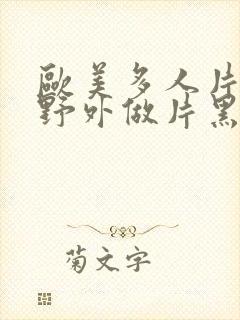 歐美多人片
野外做片黑
菊文字